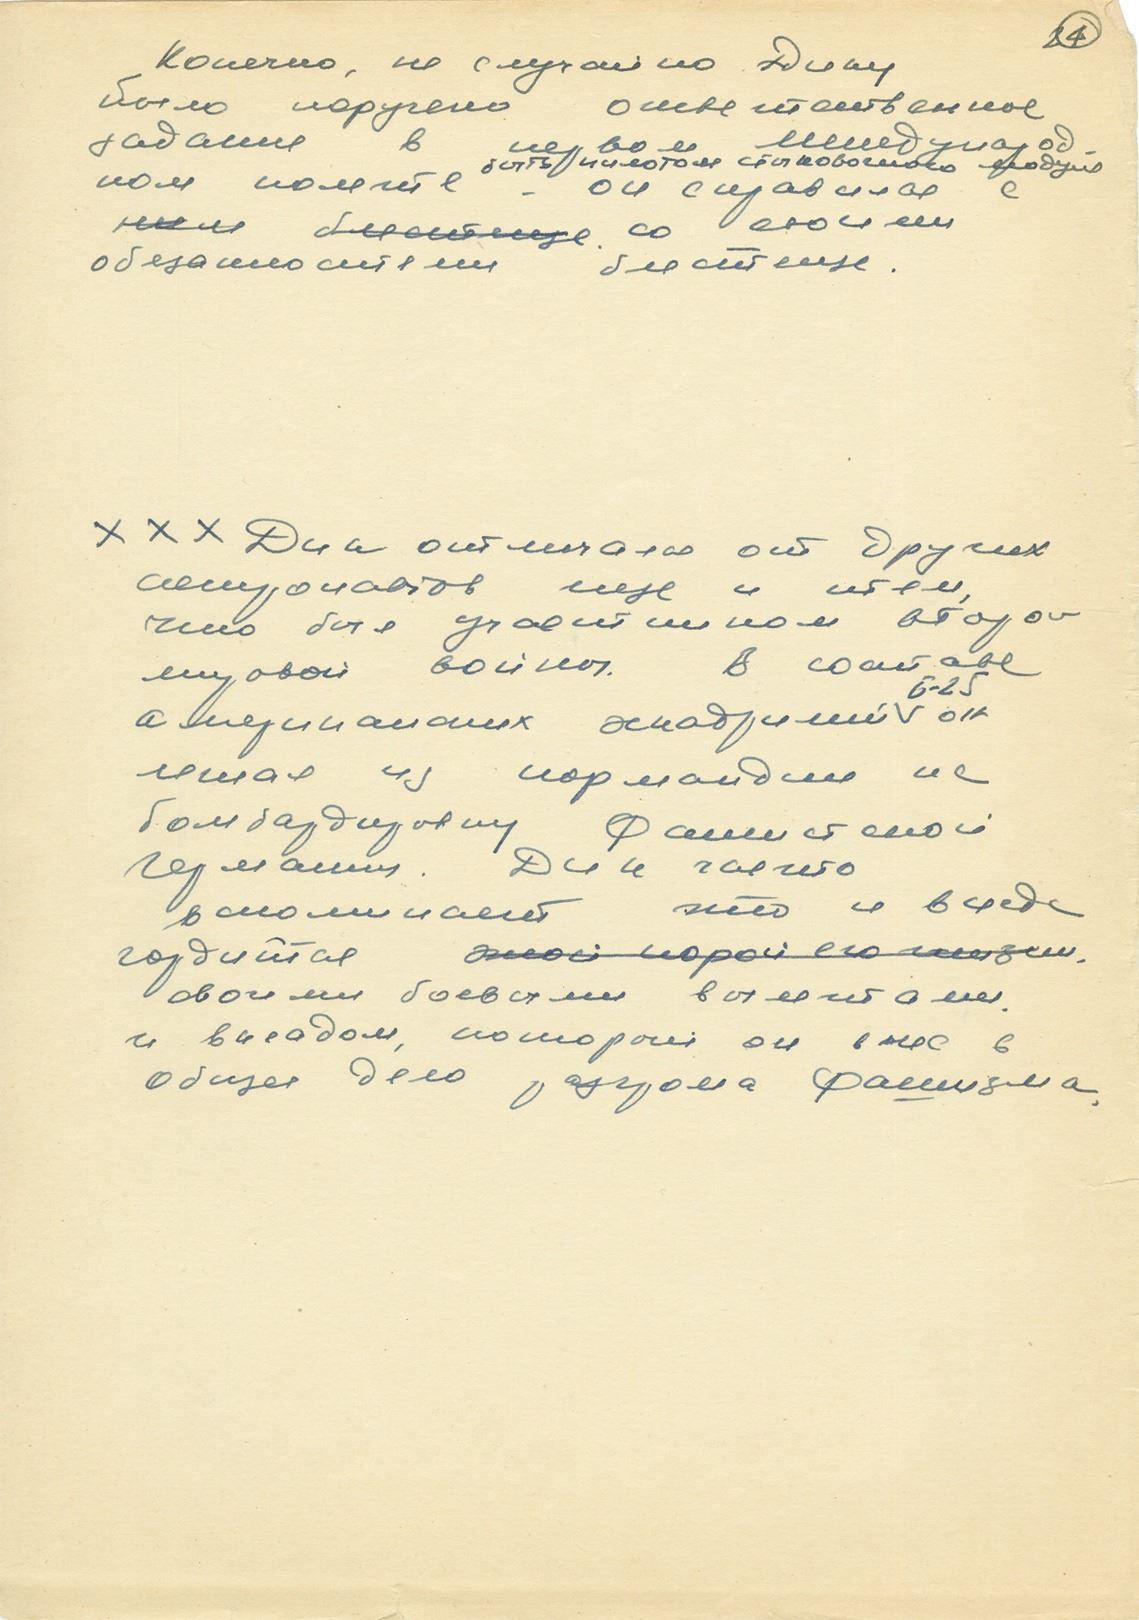 24
Конечно, не случайно Дику
было поручено ответственное
задание в первом международ-
быть пилотом стыковочного модуля
ном полете - он справился с
ним блестяще. со своими
обязанностями блестяще.
ХХХ Дик отличало от других
астронавтов еще и тем,
что был участником второй
мировой войны. В составе
Б-25
американских эскадрилий V он
летал из нормандии на
бомбардировку Фашистской
Германии. Дик часто
вспоминает это и всегда
гордится этой порой его жизни.
своими боевыми вылетами.
и вкладом, который он внес в
общее дело разгрома Фашизма.